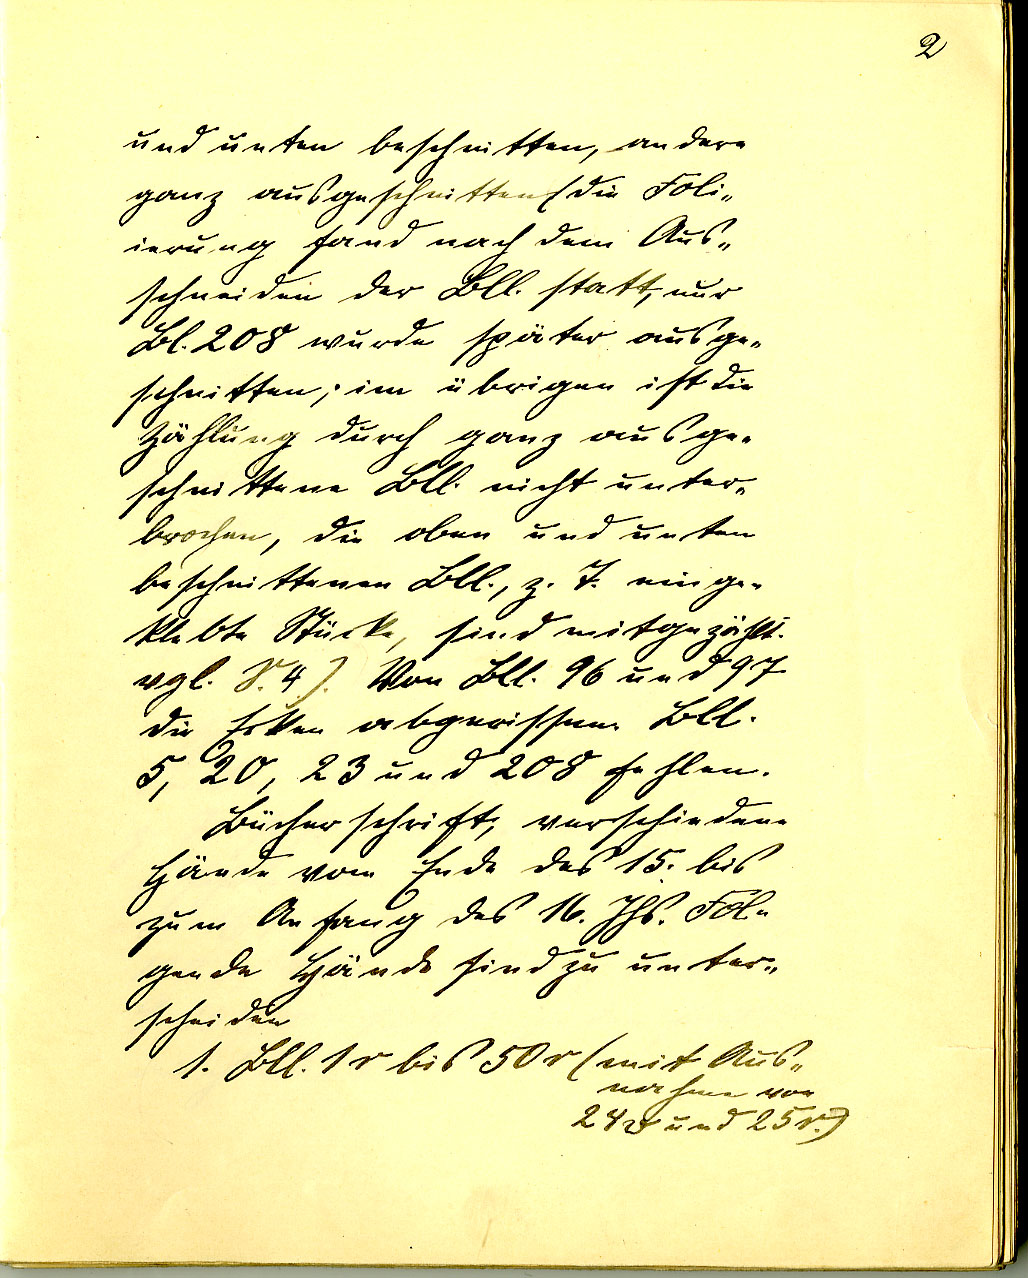 2
und unten beschnitten, andere
ganz ausgeschnitten (die Foli-
ierung fand nach dem Aus-
schneiden der Bll. statt, nur
Bl. 208 wurde später ausge-
schnitten; im übrigen ist die
Zählung durch ganz ausge-
schnittene Bll. nicht unter-
brochen, die oben und unten
beschnittenen Bll., z. T. einge-
klebte Stücke, sind mitgezählt.
vgl. S. 4). Von Bll. 96 und 97
die Ecken abgerissen. Bll.
5, 20, 23 und 208 fehlen.
Bücherschrift, verschiedene
Hände vom Ende des 15. bis
zum Anfang des 16. Jhs. Fol-
gende Hände sind zu unter-
scheiden
1. Bll. 1r bis 50r (mit Aus-
nahme von
24v und 25r.)